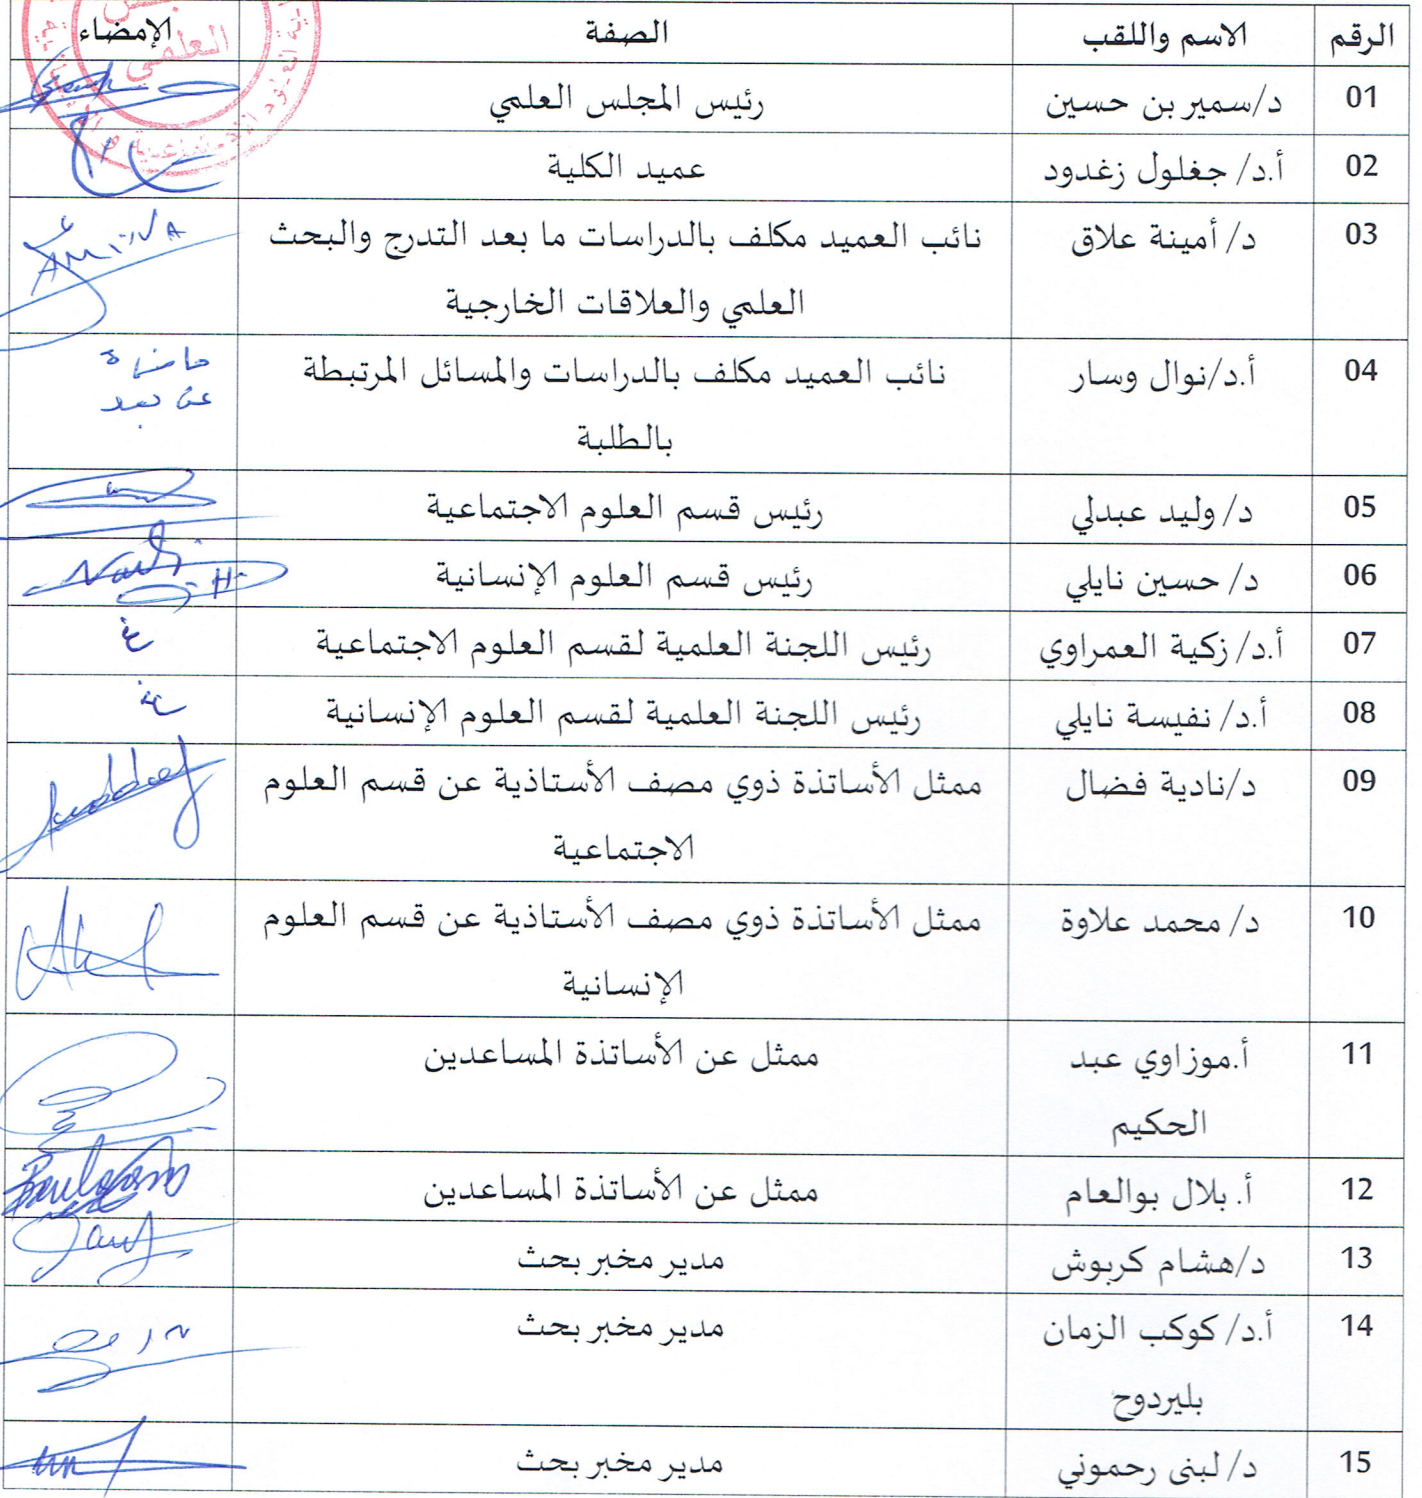 الرقم الاسم واللقب الصفة الإمضاء
01 د/سمير بن حسين رئيس المجلس العلمي
02 أ.د/ جغلول زغدود عميد الكلية
03 د/ أمينة علاق نائب العميد مكلف بالدراسات ما بعد التدرج والبحث
العلمي والعلاقات الخارجية
04 أ.د/نوال وسار نائب العميد مكلف بالدراسات والمسائل المرتبطة حاضرة
بالطلبة عن بعد
05 د/ وليد عبدلي رئيس قسم العلوم الاجتماعية
06 د/ حسين نايلي رئيس قسم العلوم الإنسانية
07 أ.د/ زكية العمراوي رئيس اللجنة العلمية لقسم العلوم الاجتماعية غ
08 أ.د/ نفيسة نايلي رئيس اللجنة العلمية لقسم العلوم الإنسانية غ
09 د/نادية فضال ممثل الأساتذة ذوي مصف الأستاذية عن قسم العلوم
الاجتماعية
10 د/ محمد علاوة ممثل الأساتذة ذوي مصف الأستاذية عن قسم العلوم
الإنسانية
11 أ.موزاوي عبد ممثل عن الأساتذة المساعدين
الحكيم
12 أ. بلال بوالعام ممثل عن الأساتذة المساعدين
13 د/هشام كربوش مدير مخبر بحث
14 أ.د/ كوكب الزمان مدير مخبر بحث
بليردوح
15 د/ لبنى رحموني مدير مخبر بحث
العلمي